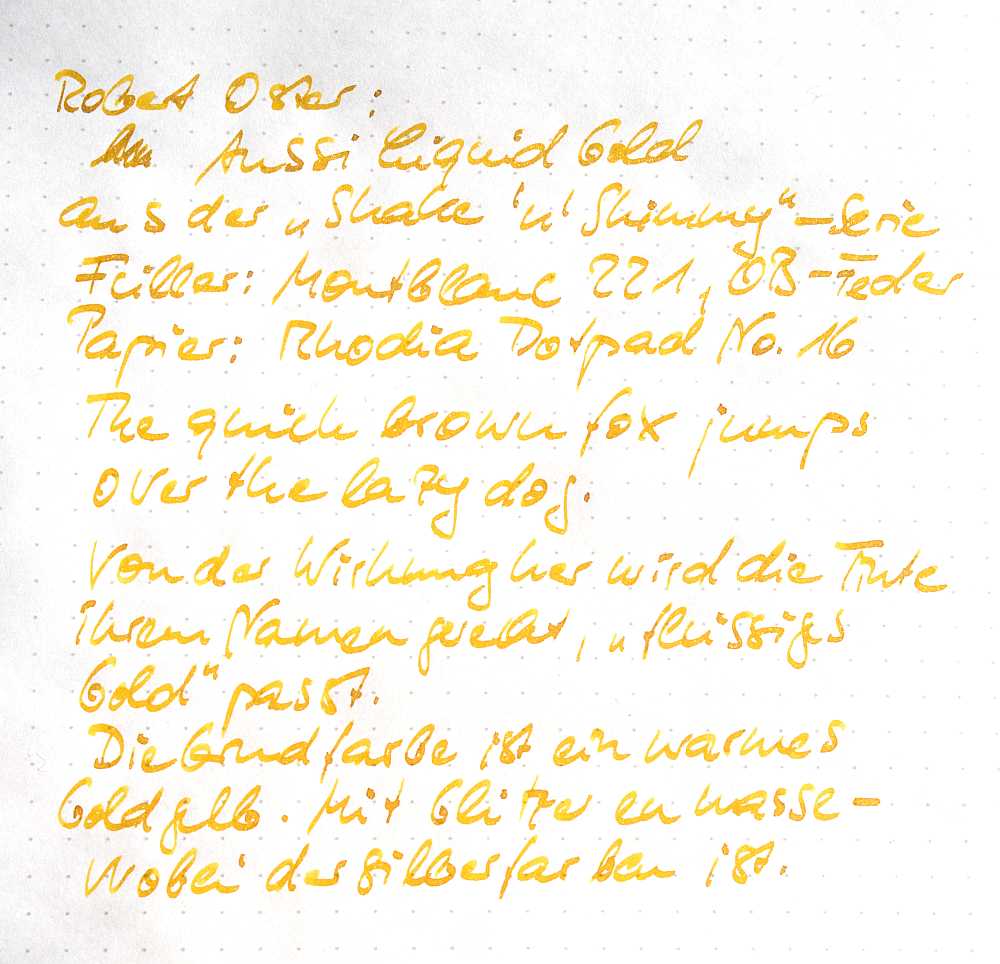 Robert Oster:
Aussi Liquid Gold
aus der „Shake 'n' Shimmy“-Serie
Füller: Montblanc 221, OB-Feder
Papier: Rhodia Dotpad No. 16
The quick brown fox jumps
over the lazy dog.
Von der Wirkung her wird die Tinte
ihrem Namen gerecht, „flüssiges
Gold“ passt.
Die Grundfarbe ist ein warmes
Goldgelb. Mit Glitzer en masse -
wobei der silberfarben ist.